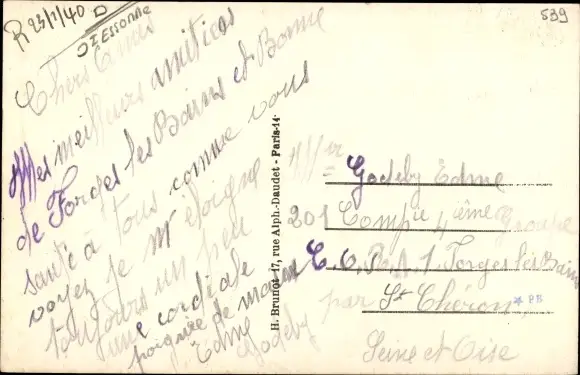 R 23/1/40
D
Essonne
539
Chers Amis
Mes meilleurs amitiées
de Forges les Bains et Bonne
santé à tous comme vous
voyez je m'éloigne
toujours un peu
une cordiale
poignée de main
Edme
Godeby
H. Brunot 17, rue Alph.-Daudet - Paris-14
Godeby Edme
201 Compie 4ième Groupe
Forges les Bains
par St Chéron
* PB
Seine et Oise